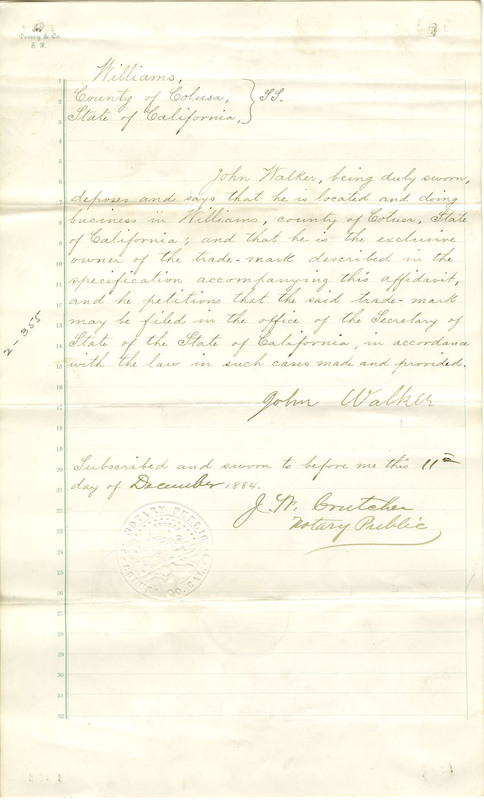 Williams,
County of Colusa, } SS.
State of California,
John Walker, being duly sworn,
deposes and says that he is located and doing
business in Williams, county of Colusa, State
of California; and that he is the exclusive
owner of the trade-mark described in the
specification accompanying this affidavit,
and he petitions that the said trade-mark
may be filed in the office of the Secretary of
State of the State of California, in accordance
with the law in such cases made and provided.
John Walker
Subscribed and sworn to before me this 11th
day of December 1884.
J. W. Crutcher
Notary Public
NOTARY PUBLIC
CO. CAL.
2-355
1
2
3
4
5
6
7
8
9
10
11
12
13
14
15
16
17
18
19
20
21
22
23
24
25
26
27
28
29
30
31
32